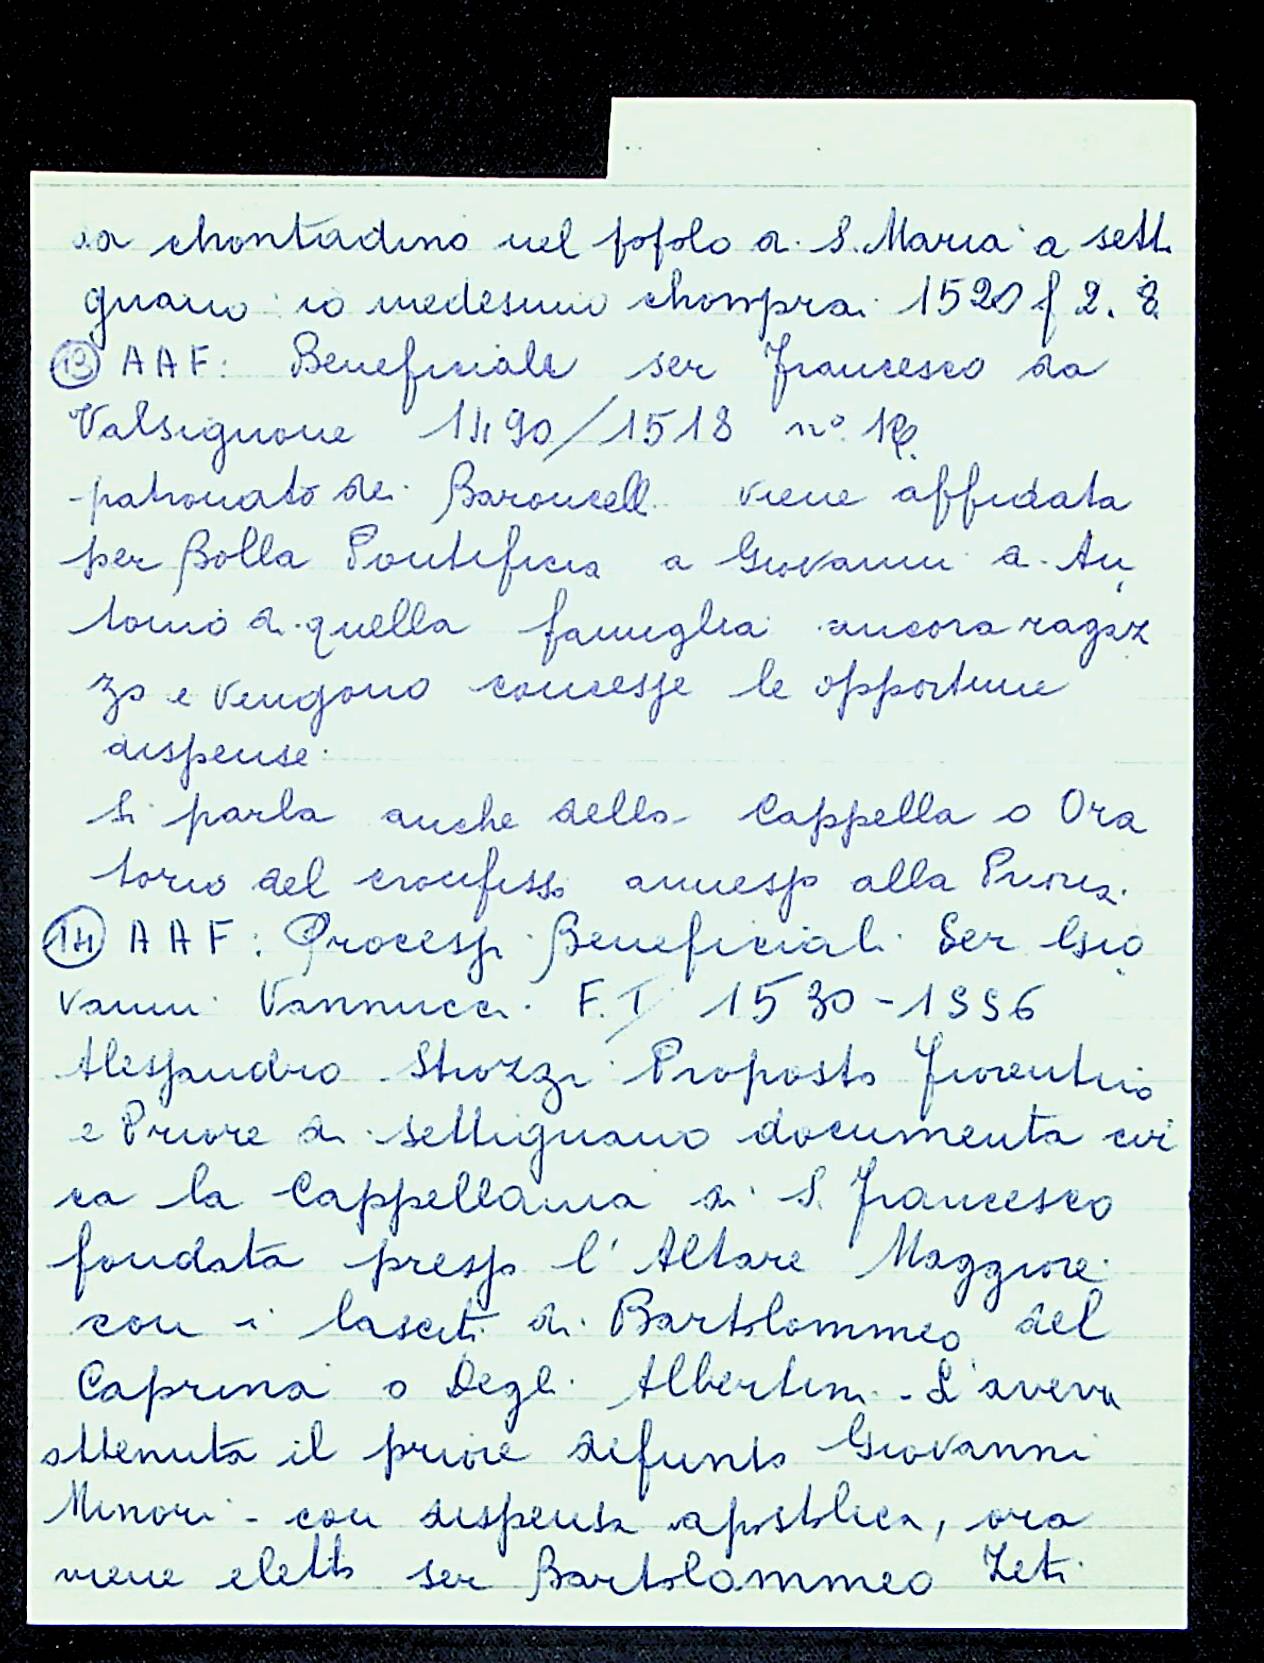 da chontadino nel popolo di S. Maria a setti
gnano io medesimo chompra 1520 f 2. 8.
(13) AAF: Beneficiale ser Francesco da
Valsignone 1490/1518 n°
patronato dei Baroncelli viene affidata
per Bolla Pontificia a Giovanni di An
tonio di quella famiglia ancora ragaz
zo e vengono concesse le opportune
dispense.
Si parla anche della Cappella o Ora
torio del crocifisso annesso alla Prioria.
(14) AAF: Processi Beneficiali Ser Gio
vanni Vannucci F.I 1530-1556
Alessandro Strozzi Proposto Fiorentino
e Priore di settignano documenta cir
ca la Cappellania di S. Francesco
fondata presso l'Altare Maggiore
con i lasciti di Bartolommeo del
Caprina o Degli Albertini - L'aveva
ottenuta il priore defunto Giovanni
Minori - con dispensa apostolica, ora
viene eletto ser Bartolommeo Zeti